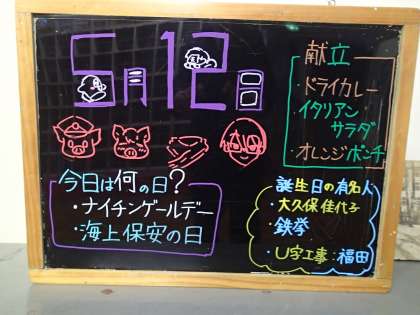 5月12日
献立
・ドライカレー
・イタリアン
サラダ
・オレンジポンチ
今日は何の日?
・ナイチンゲールデー
・海上保安の日
誕生日の有名人
・大久保佳代子
・鉄拳
・U字工事:福田